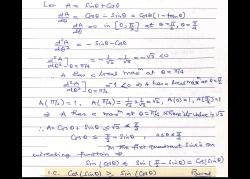 Let A = Sinθ + Cosθ
dA/dθ = Cosθ - Sinθ = Cosθ (1 - tanθ)
dA/dθ = 0 in [0, π/2] at θ = π/4
d²A/dθ² = - Sinθ - Cosθ
d²A/dθ²]θ=π/4 = -1/√2 - 1/√2 = -√2 < 0
∴ A has a local max^m at θ = π/4
= -1 < 0 ⇒ A has a local max at θ =
A(π/4) = 1/√2 + 1/√2 = √2, A(0) = 1, A(π/2) = 1
⇒ A has a max^m at θ = π/4 value is √2
∴ A = Cosθ + Sinθ ≤ √2 < π/2
Cosθ ≤ π/2 - Sinθ
In the first quadrant Sin is an
increasing function ⇒
Sin (Cosθ) < Sin (π/2 - Sinθ) = Cos (Sinθ)
i.e. Cos (Sinθ) > Sin (Cosθ) Proved